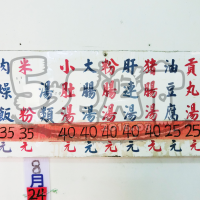 貢丸湯 25元
油豆腐 25元
豬腸湯 40元
肝連湯 40元
粉腸湯 40元
大腸湯 40元
小肚湯 40元
湯類
米粉 35元
肉燥飯 35元
8月
24